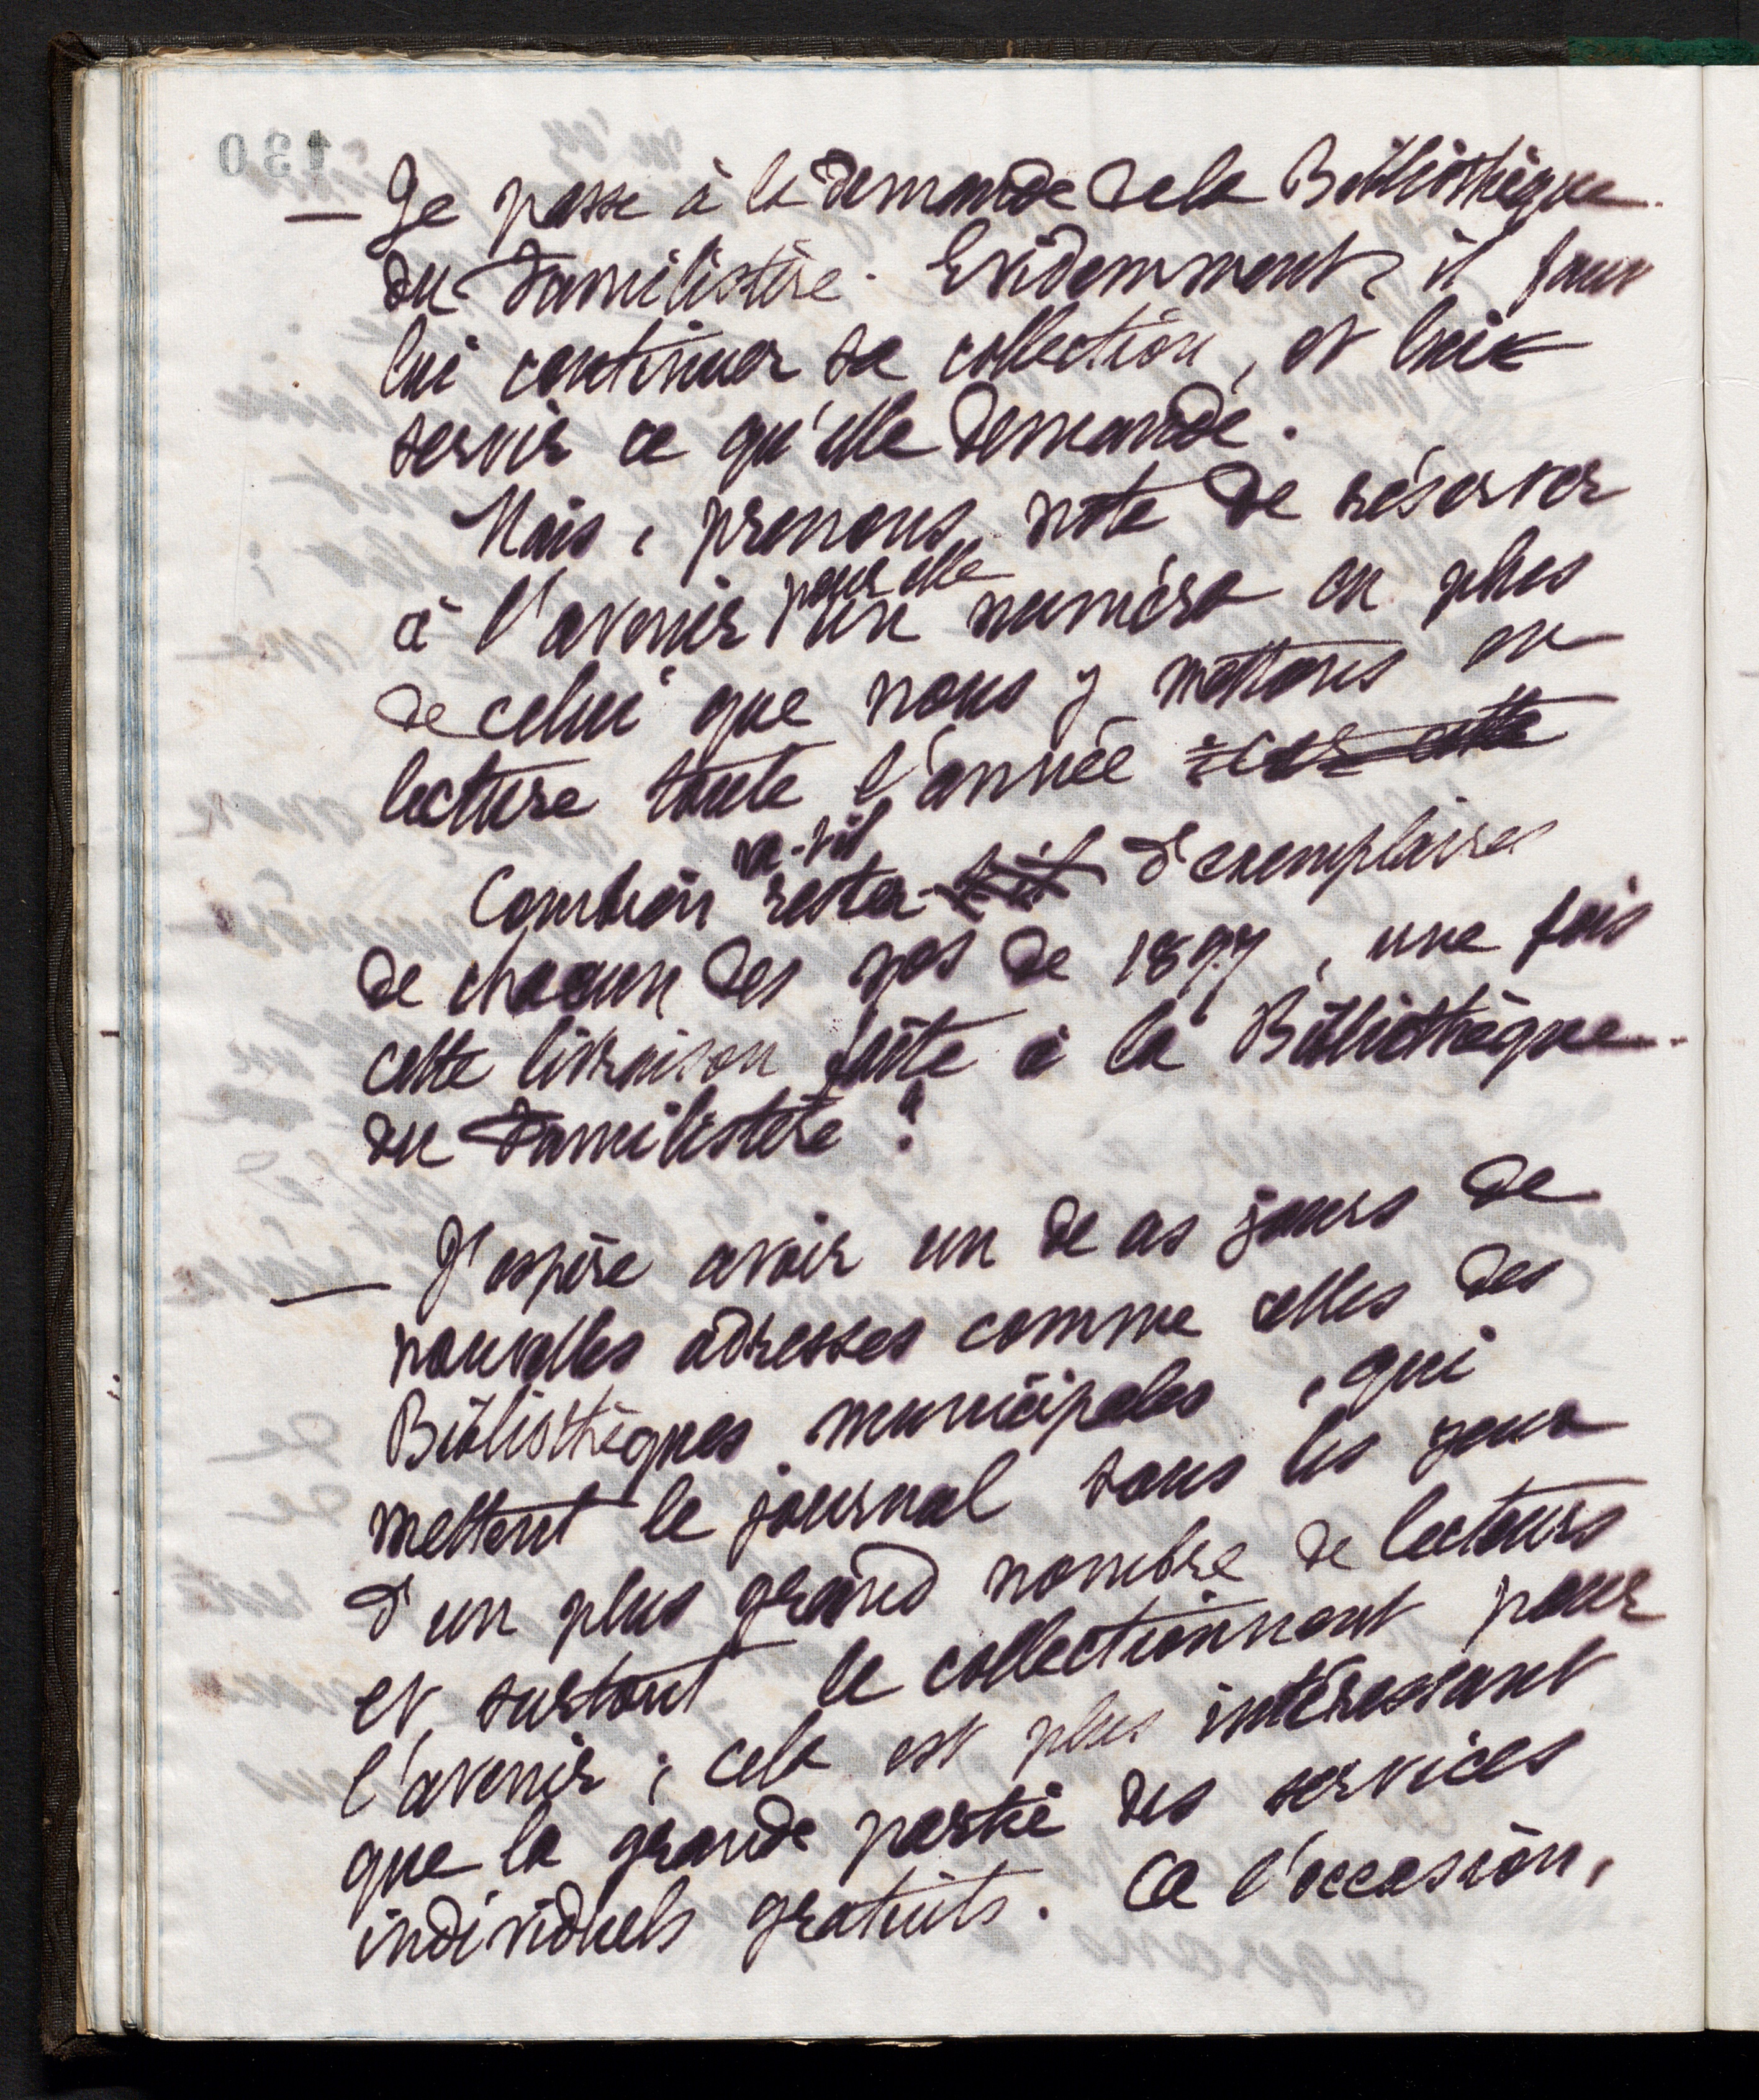 130
— Je passe à la demande de la Bibliothèque
du Familistère. Evidemment, il faut
lui continuer sa collection, et lui
servir ce qu'elle demande.
Mais, prenons note de réserver
à l'avenir pour elle un numéro en plus
de celui que nous y mettons en
lecture toute l'année : car cette
Combien va-t-il rester-t-il d'exemplaires
de chacun des nos de 1897, une fois
cette livraison faite à la Bibliothèque
du Familistère ?
— J'espère avoir un de ces jours de
nouvelles adresses comme celles des
Bibliothèques municipales, qui
mettent le journal sous les yeux
d'un plus grand nombre de lecteurs
et surtout le collectionnent pour
l'avenir ; cela est plus intéressant
que la grande partie des services
individuels gratuits. A l'occasion,